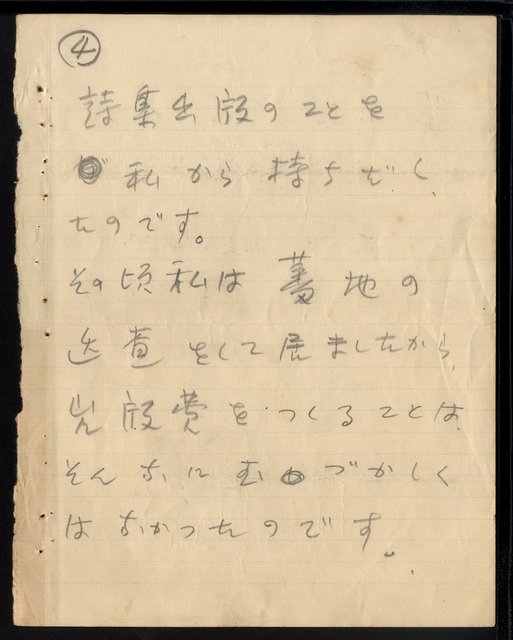 ④
詩集出版のことを
私から持ちだし
たのです。
その頃私は蕃地の
巡査をして居ましたから、
出版費をつくることは
そんなにむづかしく
はなかつたのです。